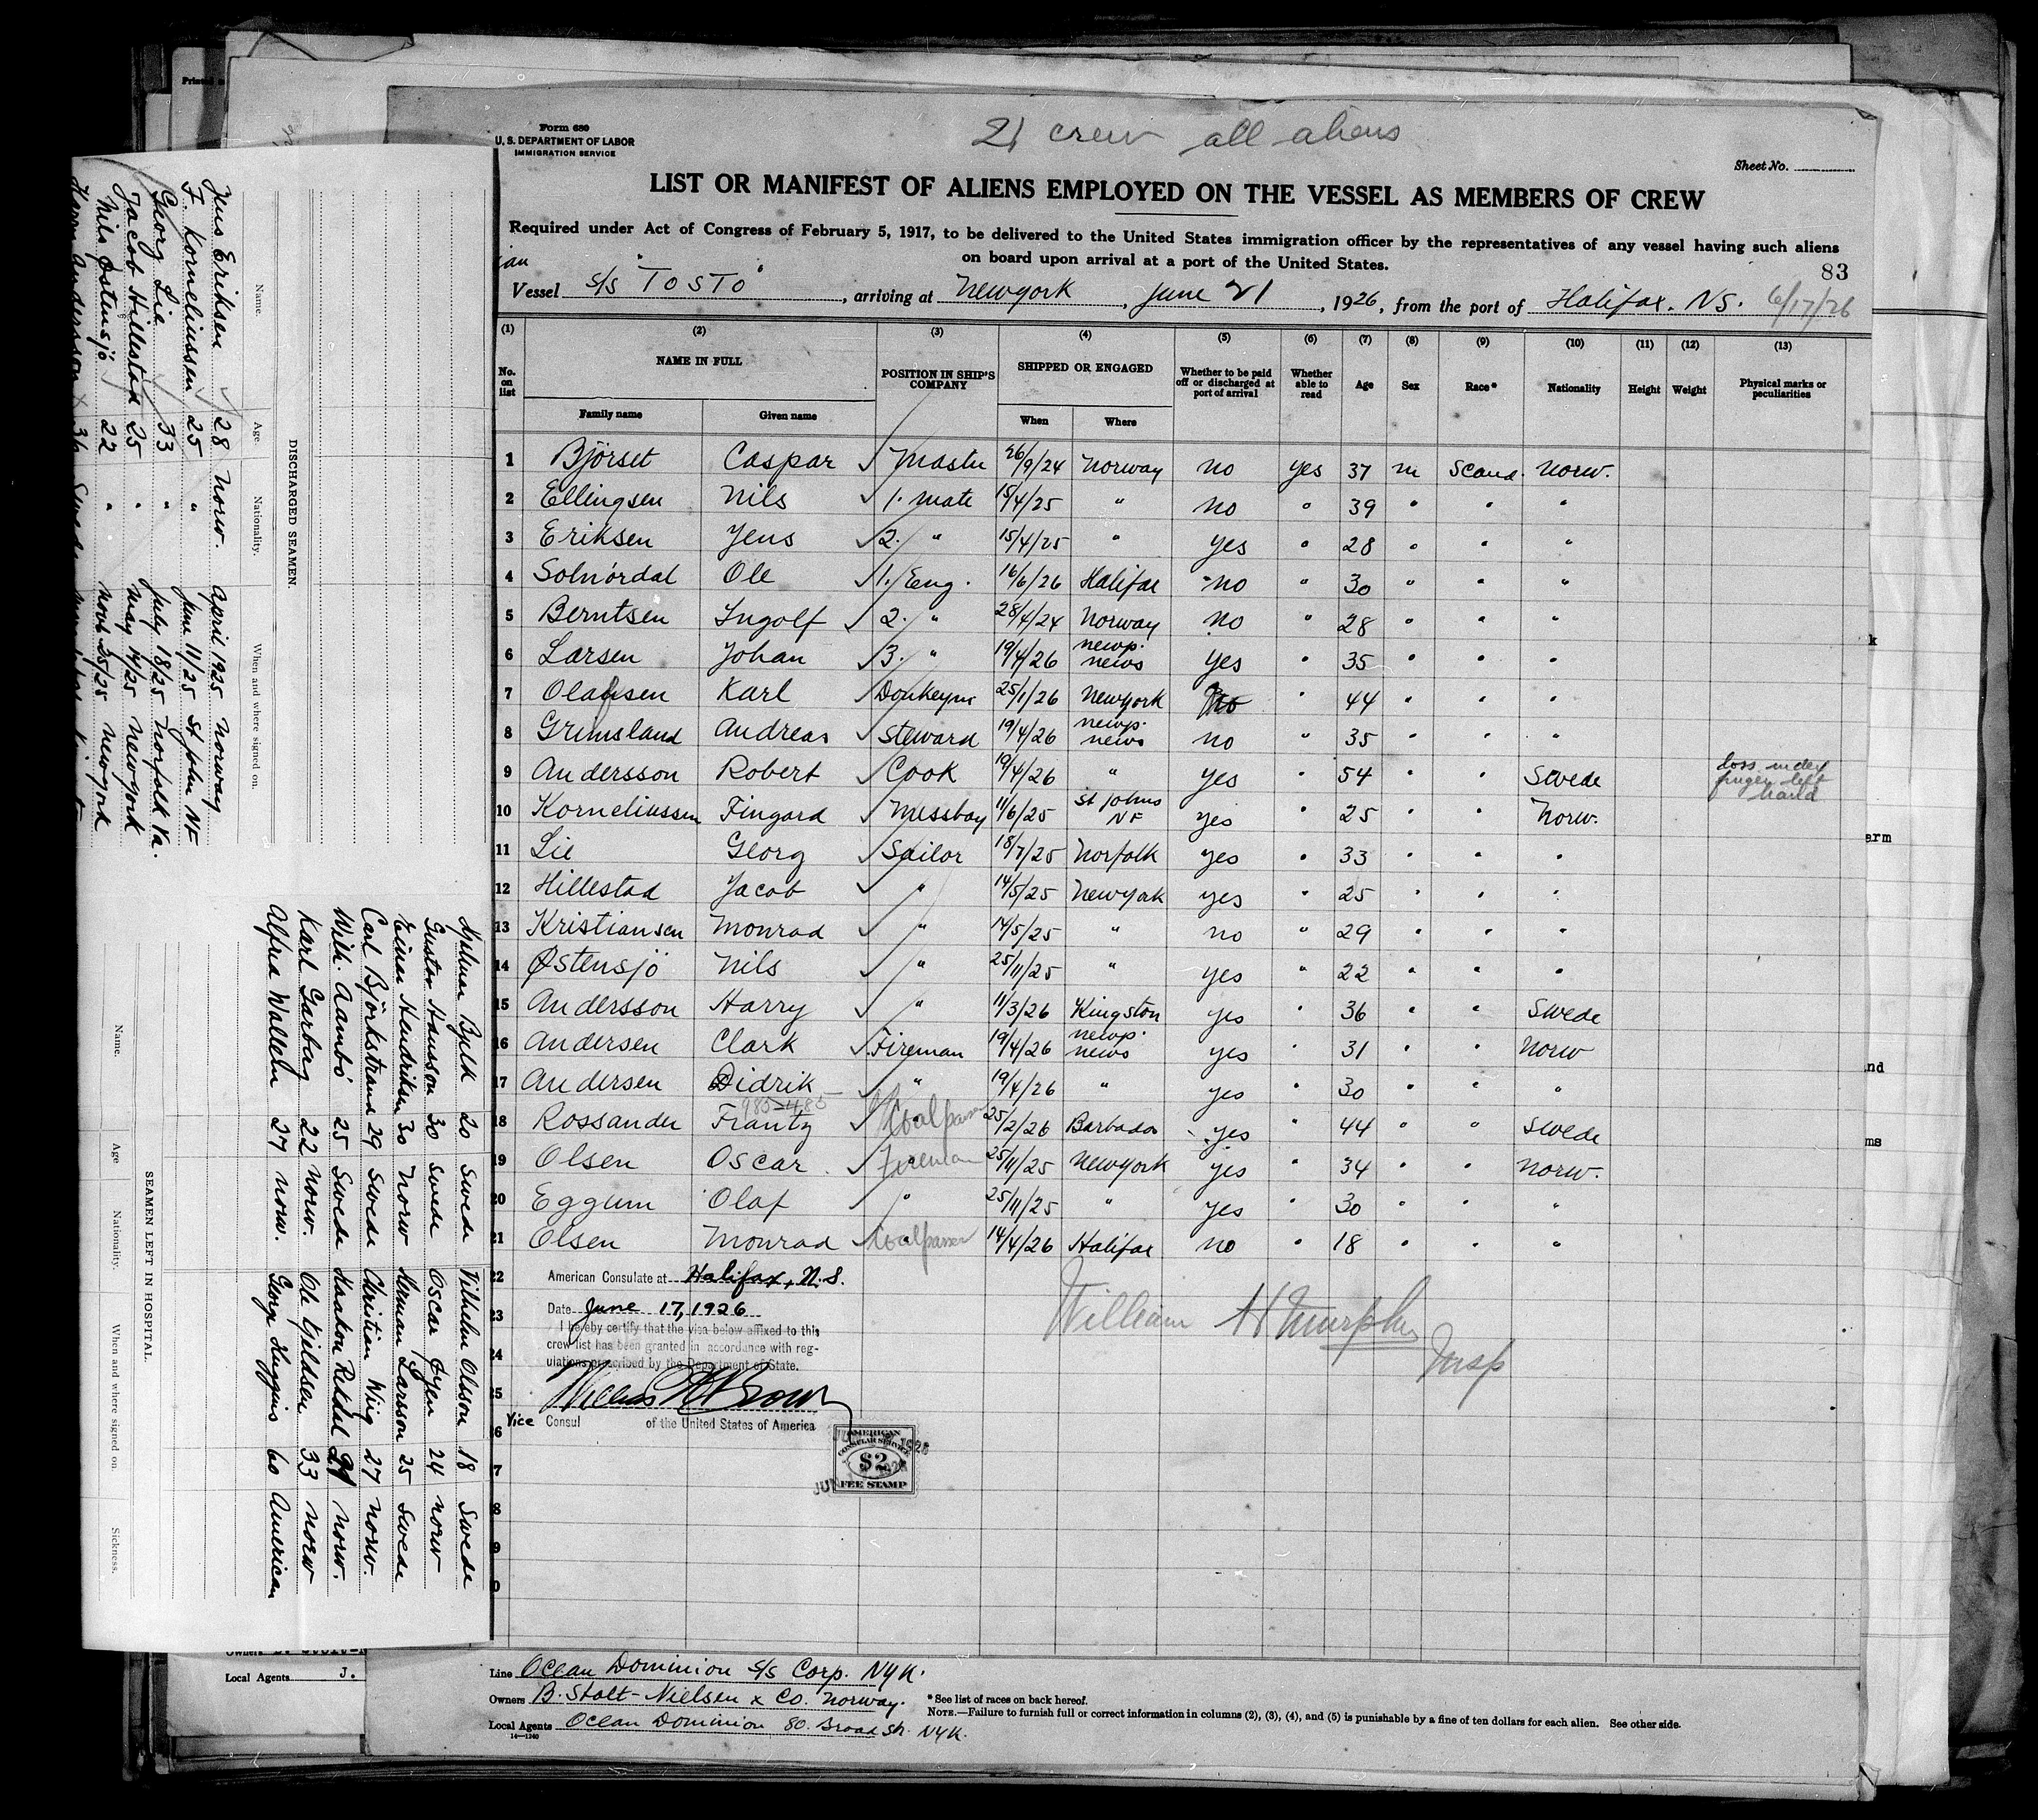 Form 680
U. S. DEPARTMENT OF LABOR
IMMIGRATION SERVICE
21 crew all aliens
Sheet No.
LIST OR MANIFEST OF ALIENS EMPLOYED ON THE VESSEL AS MEMBERS OF CREW
Required under Act of Congress of February 5, 1917, to be delivered to the United States immigration officer by the representatives of any vessel having such aliens
on board upon arrival at a port of the United States.
83
Vessel S/S "TOSTO", arriving at Newyork, June 21, 1926, from the port of Halifax. NS. 6/17/26
(1) (2) (3) (4) (5) (6) (7) (8) (9) (10) (11) (12) (13)
No. on list NAME IN FULL POSITION IN SHIP'S COMPANY SHIPPED OR ENGAGED Whether to be paid off or discharged at port of arrival Whether able to read Age Sex Race* Nationality Height Weight Physical marks or peculiarities
Family name Given name When Where
1 Björset Caspar ✓ Master 26/9/24 Norway no yes 37 m Scand. Norw.
2 Ellingsen Nils ✓ 1. mate 15/4/25 " no " 39 " " "
3 Eriksen Jens ✓ 2. " 15/4/25 " yes " 28 " " "
4 Solnördal Ole ✓ 1. Eng. 16/6/26 Halifax no " 30 " " "
5 Berntsen Ingolf ✓ 2. " 28/4/24 Norway no " 28 " " "
6 Larsen Johan ✓ 3. " 19/4/26 newp. news yes " 35 " " "
7 Olafsen Karl ✓ Donkeym 25/1/26 Newyork no " 44 " " "
8 Grimsland Andreas ✓ Steward 19/4/26 newp. news no " 35 " " "
9 Andersson Robert ✓ Cook 19/4/26 " yes " 54 " " Swede loss index finger left hand
10 Korneliussen Fingard ✓ Messboy 11/6/25 St Johns NF yes " 25 " " Norw.
11 Lie Georg ✓ Sailor 18/7/25 Norfolk yes " 33 " " "
12 Hillestad Jacob ✓ " 14/5/25 Newyork yes " 25 " "
13 Kristiansen Monrad ✓ " 14/5/25 " no " 29 " " "
14 Østensjö Nils ✓ " 25/11/25 " yes " 22 " " "
15 Andersson Harry ✓ " 11/3/26 Kingston yes " 36 " " Swede
16 Andersen Clark ✓ Fireman 19/4/26 newp. news yes " 31 " " Norw
17 Andersen Didrik ✓ " 19/4/26 " yes " 30 " " "
18 Rossander Frantz ✓ Coalpasser 25/2/26 Barbados yes " 44 " " Swede
19 Olsen Oscar ✓ Fireman 25/11/25 Newyork yes " 34 " " Norw.
20 Eggum Olaf ✓ " 25/11/25 " yes " 30 " " "
21 Olsen Monrad ✓ Coalpasser 14/4/26 Halifax no " 18 " " "
22 American Consulate at Halifax, N.S.
23 Date June 17, 1926
I hereby certify that the visa below affixed to this
crew list has been granted in accordance with reg-
24 ulations prescribed by the Department of State.
William H Murphy
Insp
Vice Consul of the United States of America
AMERICAN
CONSULAR SERVICE
$2
FEE STAMP
Line Ocean Dominion S/S Corp. NYK.
Owners B. Stolt-Nielsen & Co. Norway.
Local Agents Ocean Dominion 80. Broad St. NYK.
14—1240
* See list of races on back hereof.
NOTE.—Failure to furnish full or correct information in columns (2), (3), (4), and (5) is punishable by a fine of ten dollars for each alien. See other side.
DISCHARGED SEAMEN.
Name. Age. Nationality. When and where signed on.
Jens Eriksen 28 Norw. April 1925 Norway
F. Korneliussen 25 " June 11/25 St John NF
Georg Lie 33 " July 18/25 Norfolk Va.
Jacob Hillestad 25 " May 14/25 Newyork
Nils Östensjö 22 " Novb 25/25 Newyork
SEAMEN LEFT IN HOSPITAL.
Name. Age Nationality. When and where signed on. Sickness.
Hjalmar Bylk 20 Swede Vilhelm Olsson 18 Swede
Gustav Hansson 30 Swede Oscar Øyen 24 Norw
Einar Hendriksen 30 Norw Herman Larsson 25 Swede
Carl Björkstrand 29 Swede Christian Wiig 27 Norw.
Wilh. Aambö 25 Swede Haakon Reidal 29 Norw.
Karl Garborg 22 Norw. Ole Gjeldsen 33 Norw
Alfred Wallem 27 Norw. George Huggins 60 American
Local Agents J.